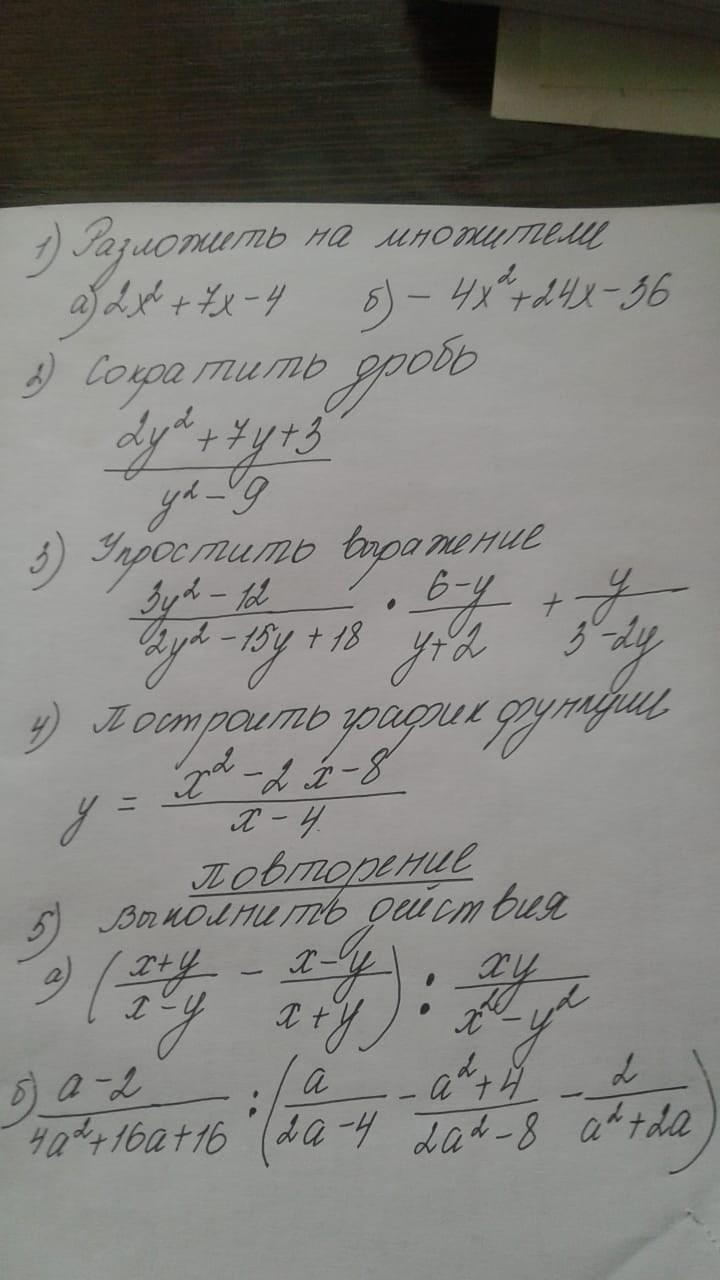 1) Разложить на множители
а) 2x² + 7x - 4 б) - 4x² + 24x - 36
2) Сократить дробь
2y² + 7y + 3
y² - 9
3) Упростить выражение
3y² - 12 · 6 - y + y
2y² - 15y + 18 y + 2 3 - 2y
4) Построить график функции
y = x² - 2x - 8
x - 4
Повторение
5) Выполнить действия
а) (x+y - x-y) : xy
x-y x+y x² - y²
б) a - 2 : (a - a² + 4 - 2)
4a² + 16a + 16 2a - 4 2a² - 8 a² + 2a